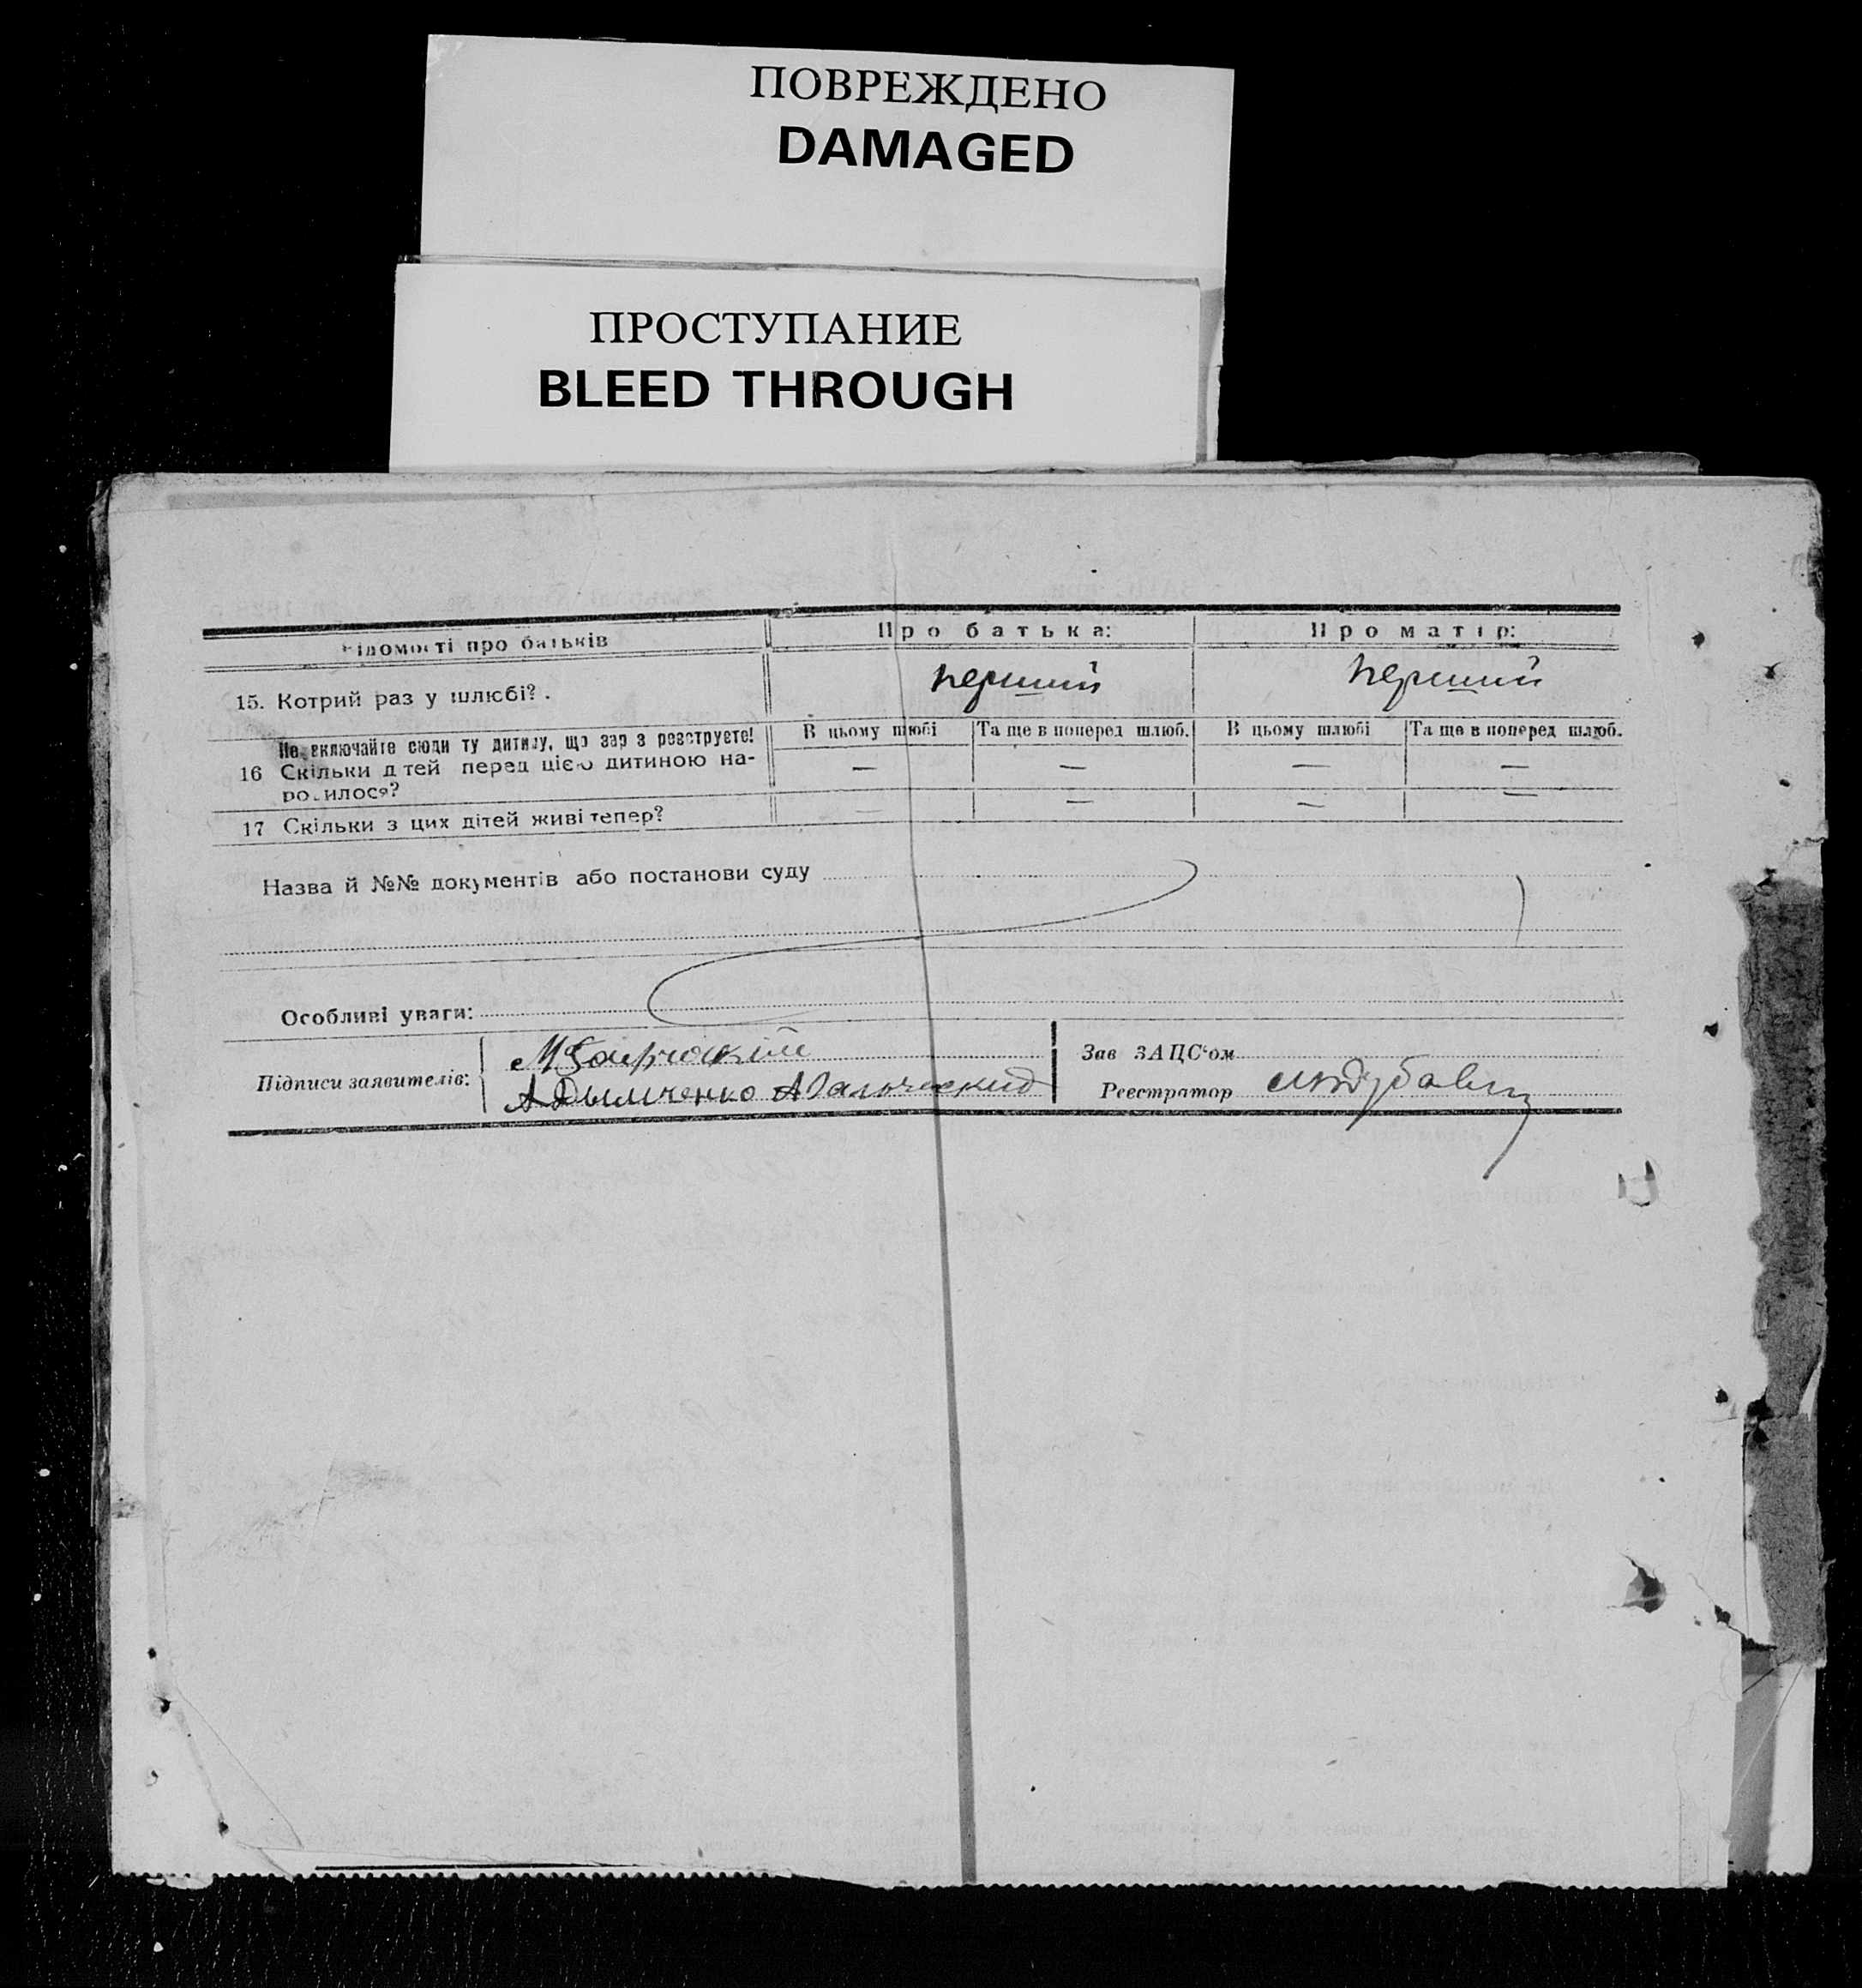 ПОВРЕЖДЕНО
DAMAGED
ПРОСТУПАНИЕ
BLEED THROUGH
Відомості про батьків
Про батька:
Про матір:
15. Котрий раз у шлюбі?.
перший
перший
Не включайте сюди ту дитину, що зар з реєструєте!
16 Скільки дітей перед цією дитиною на-
родилося?
В цьому шлюбі
Та ще в поперед шлюб.
В цьому шлюбі
Та ще в поперед шлюб.
— — — —
17 Скільки з цих дітей живі тепер?
— — — —
Назва й №№ документів або постанови суду
Особливі уваги:
Підписи заявителів:
А Дымченко А
Зав ЗАЦС'ом
Реєстратор